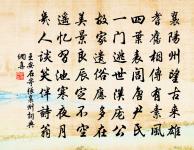 襄陽州望古來雄
耆舊相傳有素風
四葉表閭唐尹氏
一門逃世漢龐公
故家遺俗應多在
美景良辰定不空
遙憶習池寒夜月
幾人談笑伴詩翁
王安石寄張襄州詞典
網喜